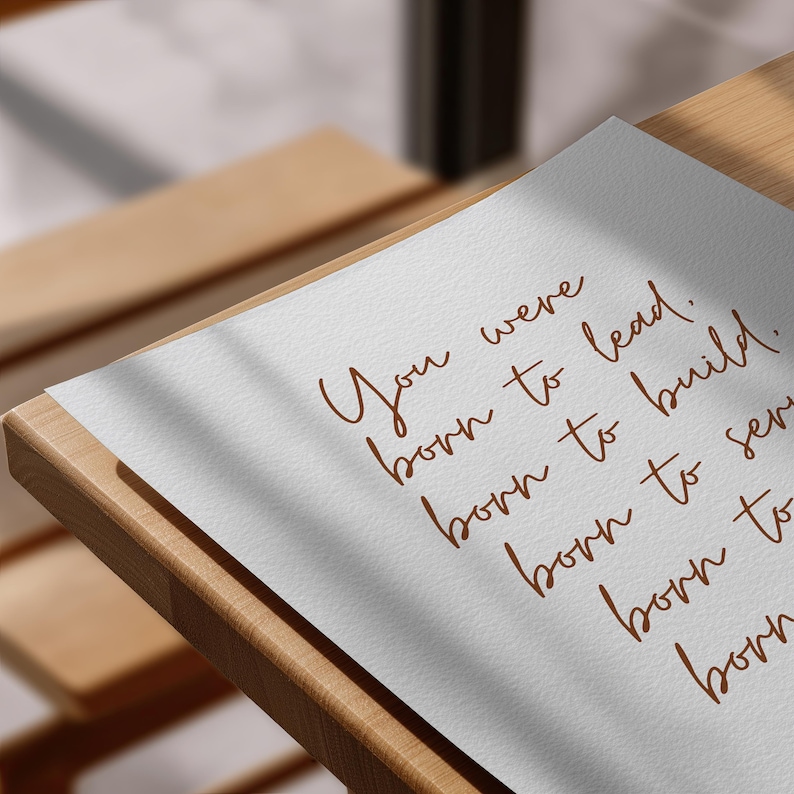 You were
born to lead,
born to build,
born to
born to
born